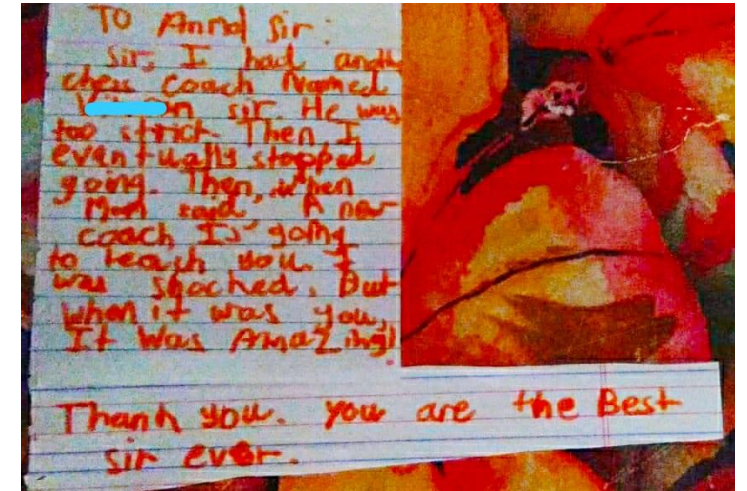 To Anmol Sir:
Sir, I had anoth
chess coach Named
sir. He was
too strict. Then I
eventually stopped
going. Then, when
Mom said, A new
coach Is going
to teach you. I
was shocked, But
when it was you,
It Was AmaZing!
Thank you. You are the Best
sir ever.